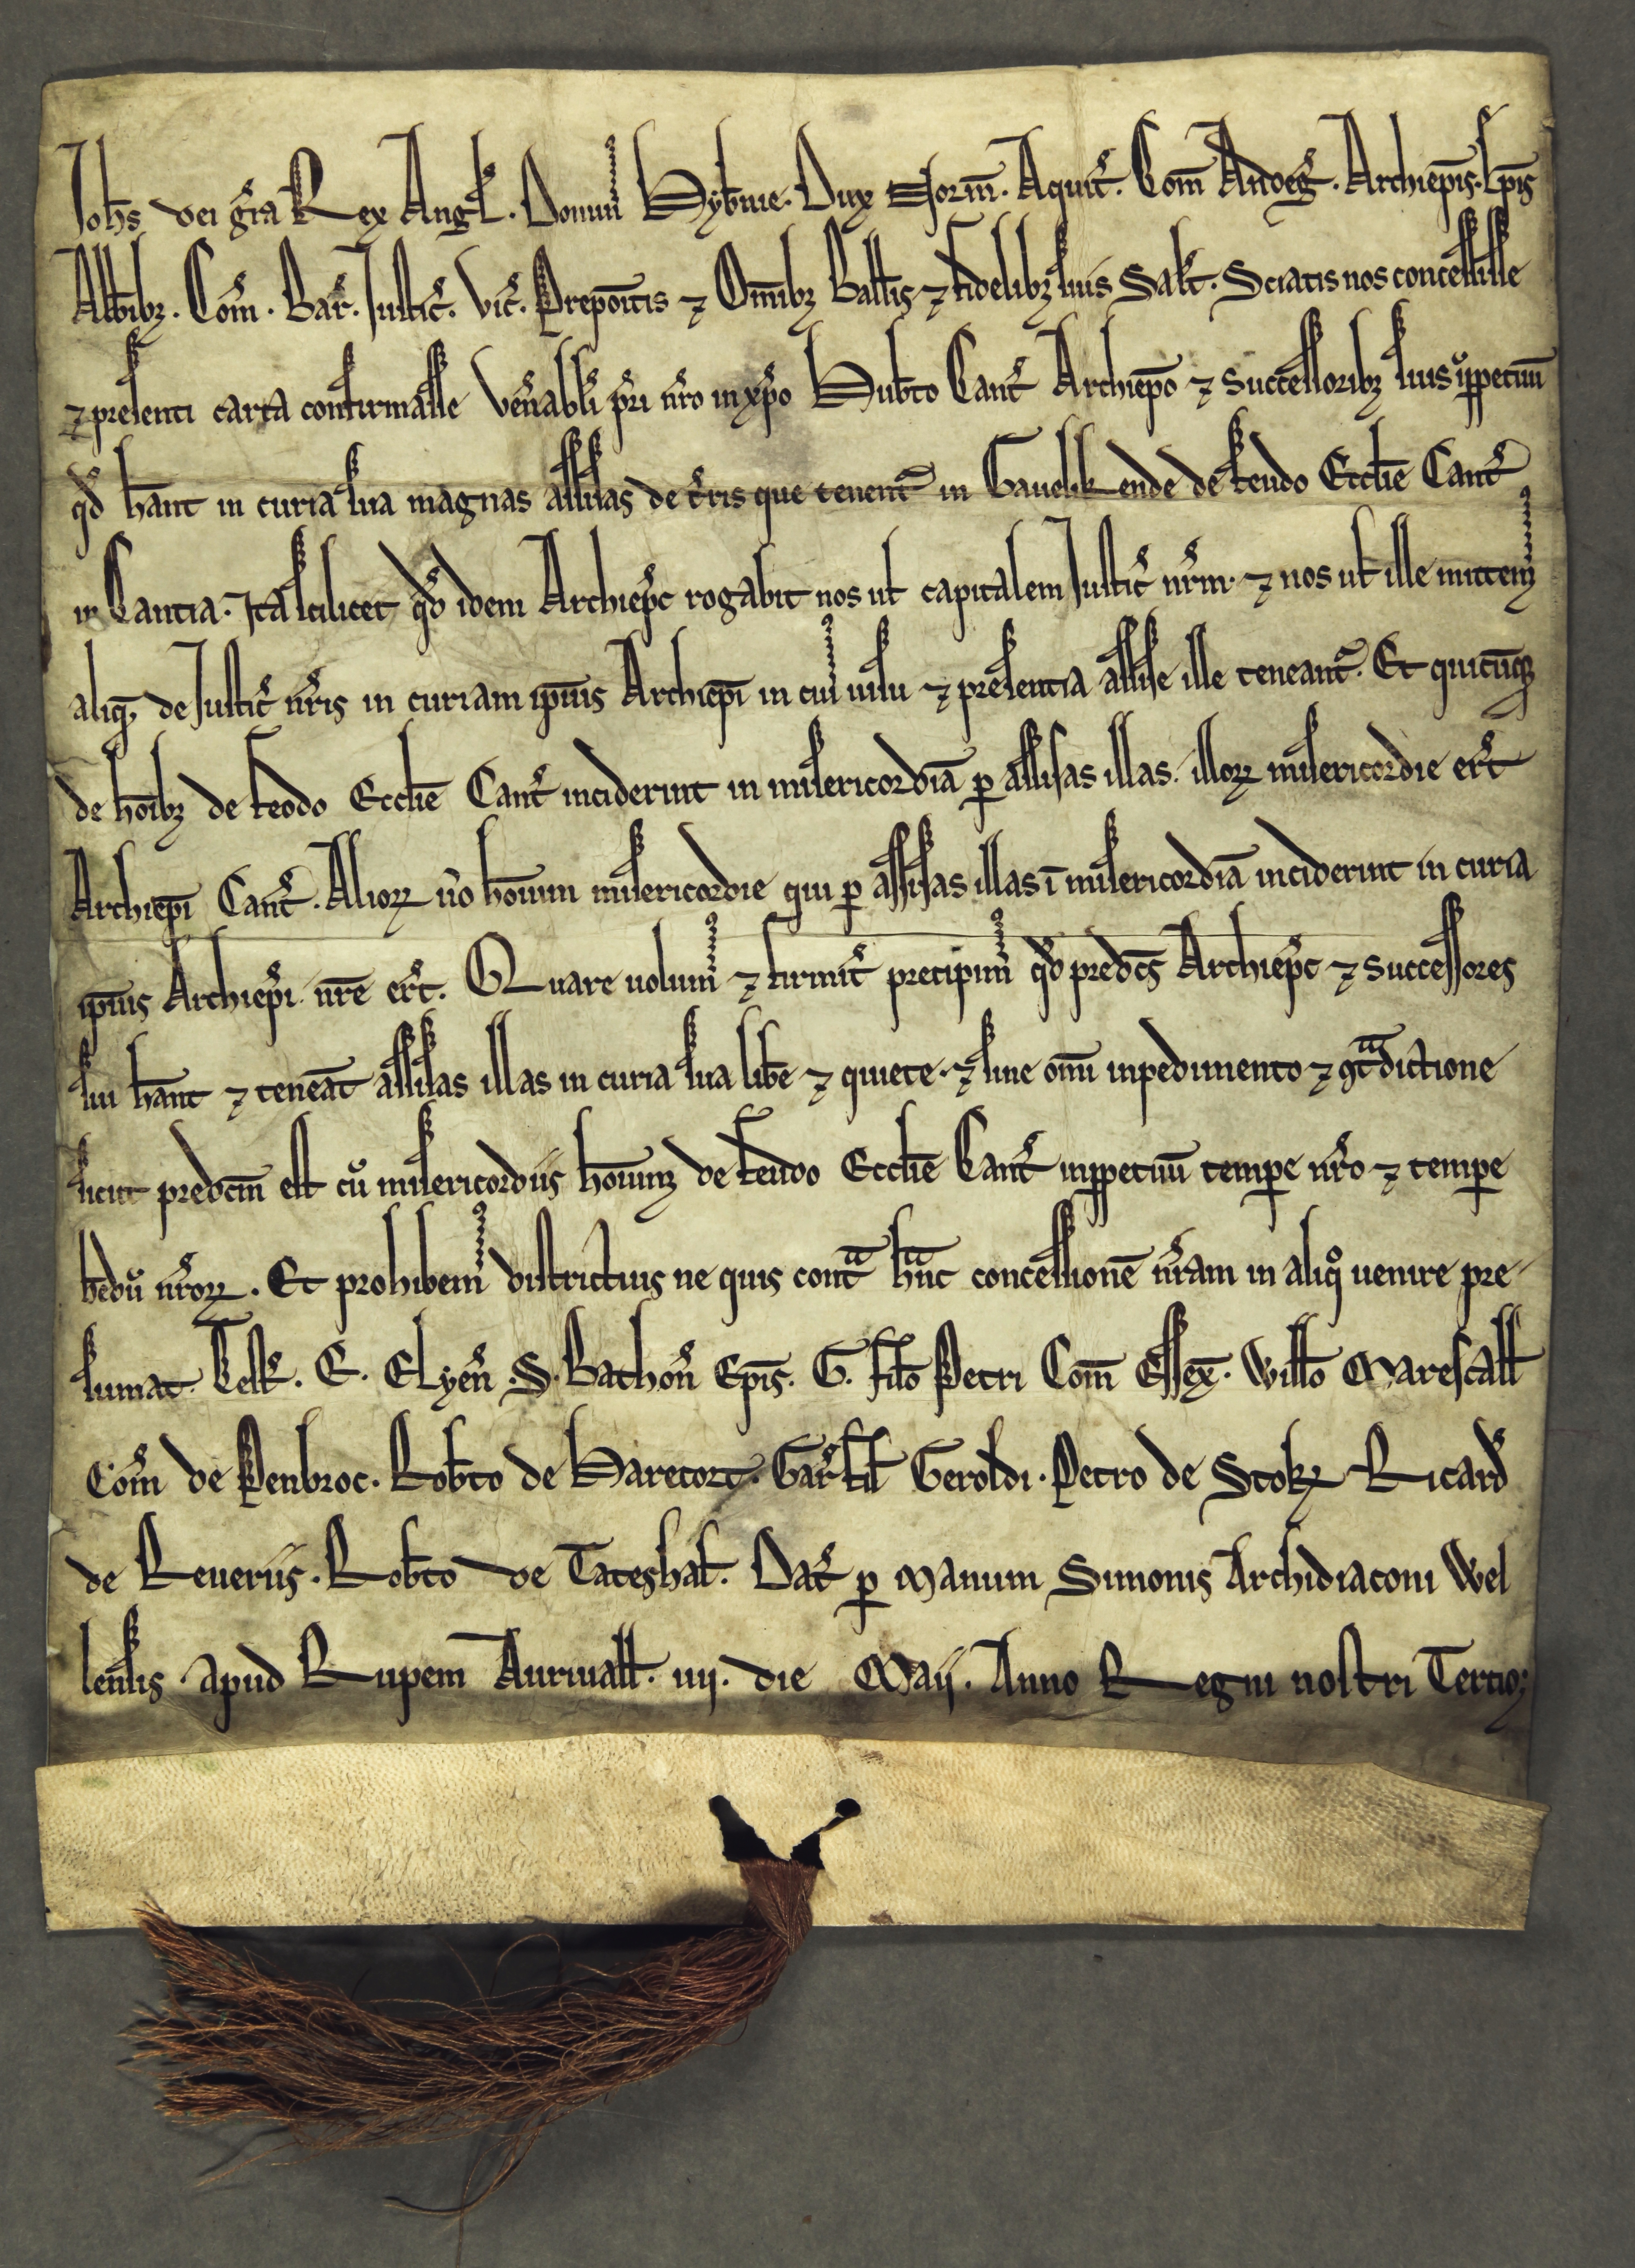 Joh̄s dei gr̄a Rex Angł. Domin᷒ Hyb̄nie. Dux Norm̄. Aquit̄. Com̄ Andeḡ. Archiep̄is. Ep̄is
Abb̄ibꝫ. Com̄. Bar̄. Justic̄. Vic̄. Prepoītis ⁊ Om̄ibꝫ Ball̄is ⁊ fidelibꝫ suis Salt̄. Sciatis nos concessisse
⁊ presenti carta confirmasse Ven̄abli pr̄i nr̄o in xp̄o Hub̄to Cant̄ Archiep̄o ⁊ Successoribꝫ suis īꝑpetuū
qd̄ h̄ant in curia sua magnas assisas de t̄ris que tenent᷑ in Gauelikende de feudo Eccłie Cant̄
in Cantia. Ita scilicet qd̄ idem Archiep̄c rogabit nos uł capitalem Justic̄ nr̄m. ⁊ nos uł ille mittem᷒
aliq̄ de Justic̄ nr̄is in curiam ip̄ius Archiep̄i in cui᷒ uisu ⁊ presentia assise ille teneant᷑. Et quicūqꝫ
de hoībꝫ de feodo Eccłie Cant̄ inciderint in misericordiā ꝑ assisas illas. illoꝝ misericordie er̄t
Archiep̄i Cant̄. Alioꝝ ūo hoīum misericordie qui ꝑ assisas illas ī misericordiā inciderint in curia
ip̄ius Archiep̄i nr̄e er̄t. Quare uolum᷒ ⁊ firmit̄ precipim᷒ qd̄ pred̄cs Archiep̄c ⁊ Successores
sui h̄ant ⁊ teneāt assisas illas in curia sua lib̄e ⁊ quiete. ⁊ sine om̄i inpedimento ⁊ ꝯt̄dictione
sicut pred̄cm est cū misericordiis hoīum de feudo Eccłie Cant̄ inꝑpetuū temꝑe nr̄o ⁊ temꝑe
h̄edū nr̄oꝝ. Et prohibem᷒ districtius ne quis cont̄ h̄nc concessionē nr̄am in aliq̊ uenire pre-
sumat. Test̄. E. Elyen̄ .S. Bathon̄ Ep̄is. G. filō Petri Com̄ Essex̄. Willō Marescałł
Com̄ de Penbroc. Rob̄to de Harecort. Gar̄ fił Geroldi. Petro de Stokꝫ Ricard̄
de Reueriis. Rob̄to de Tateshał. Dat̄ ꝑ manum Simonis Archidiaconi Wel
lensis. apud Rupem Auriuałł. iiij. die Maij. Anno Regni nostri Tertio;